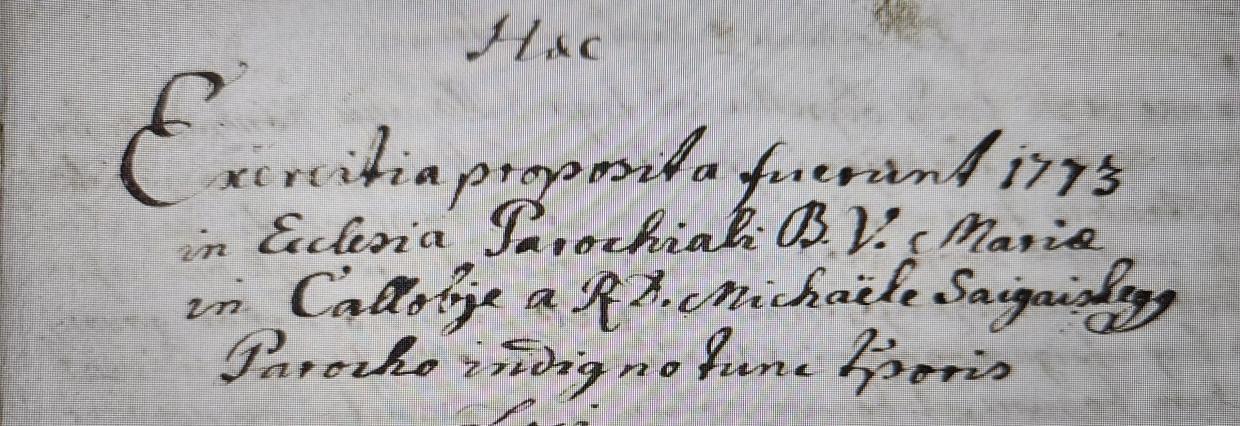 Hac
Exercitia proposita fuerunt 1773
in Ecclesia Parochiali B. V. Mariæ
in Callobje a R D. Michaële
Parocho indigno tunc tporis